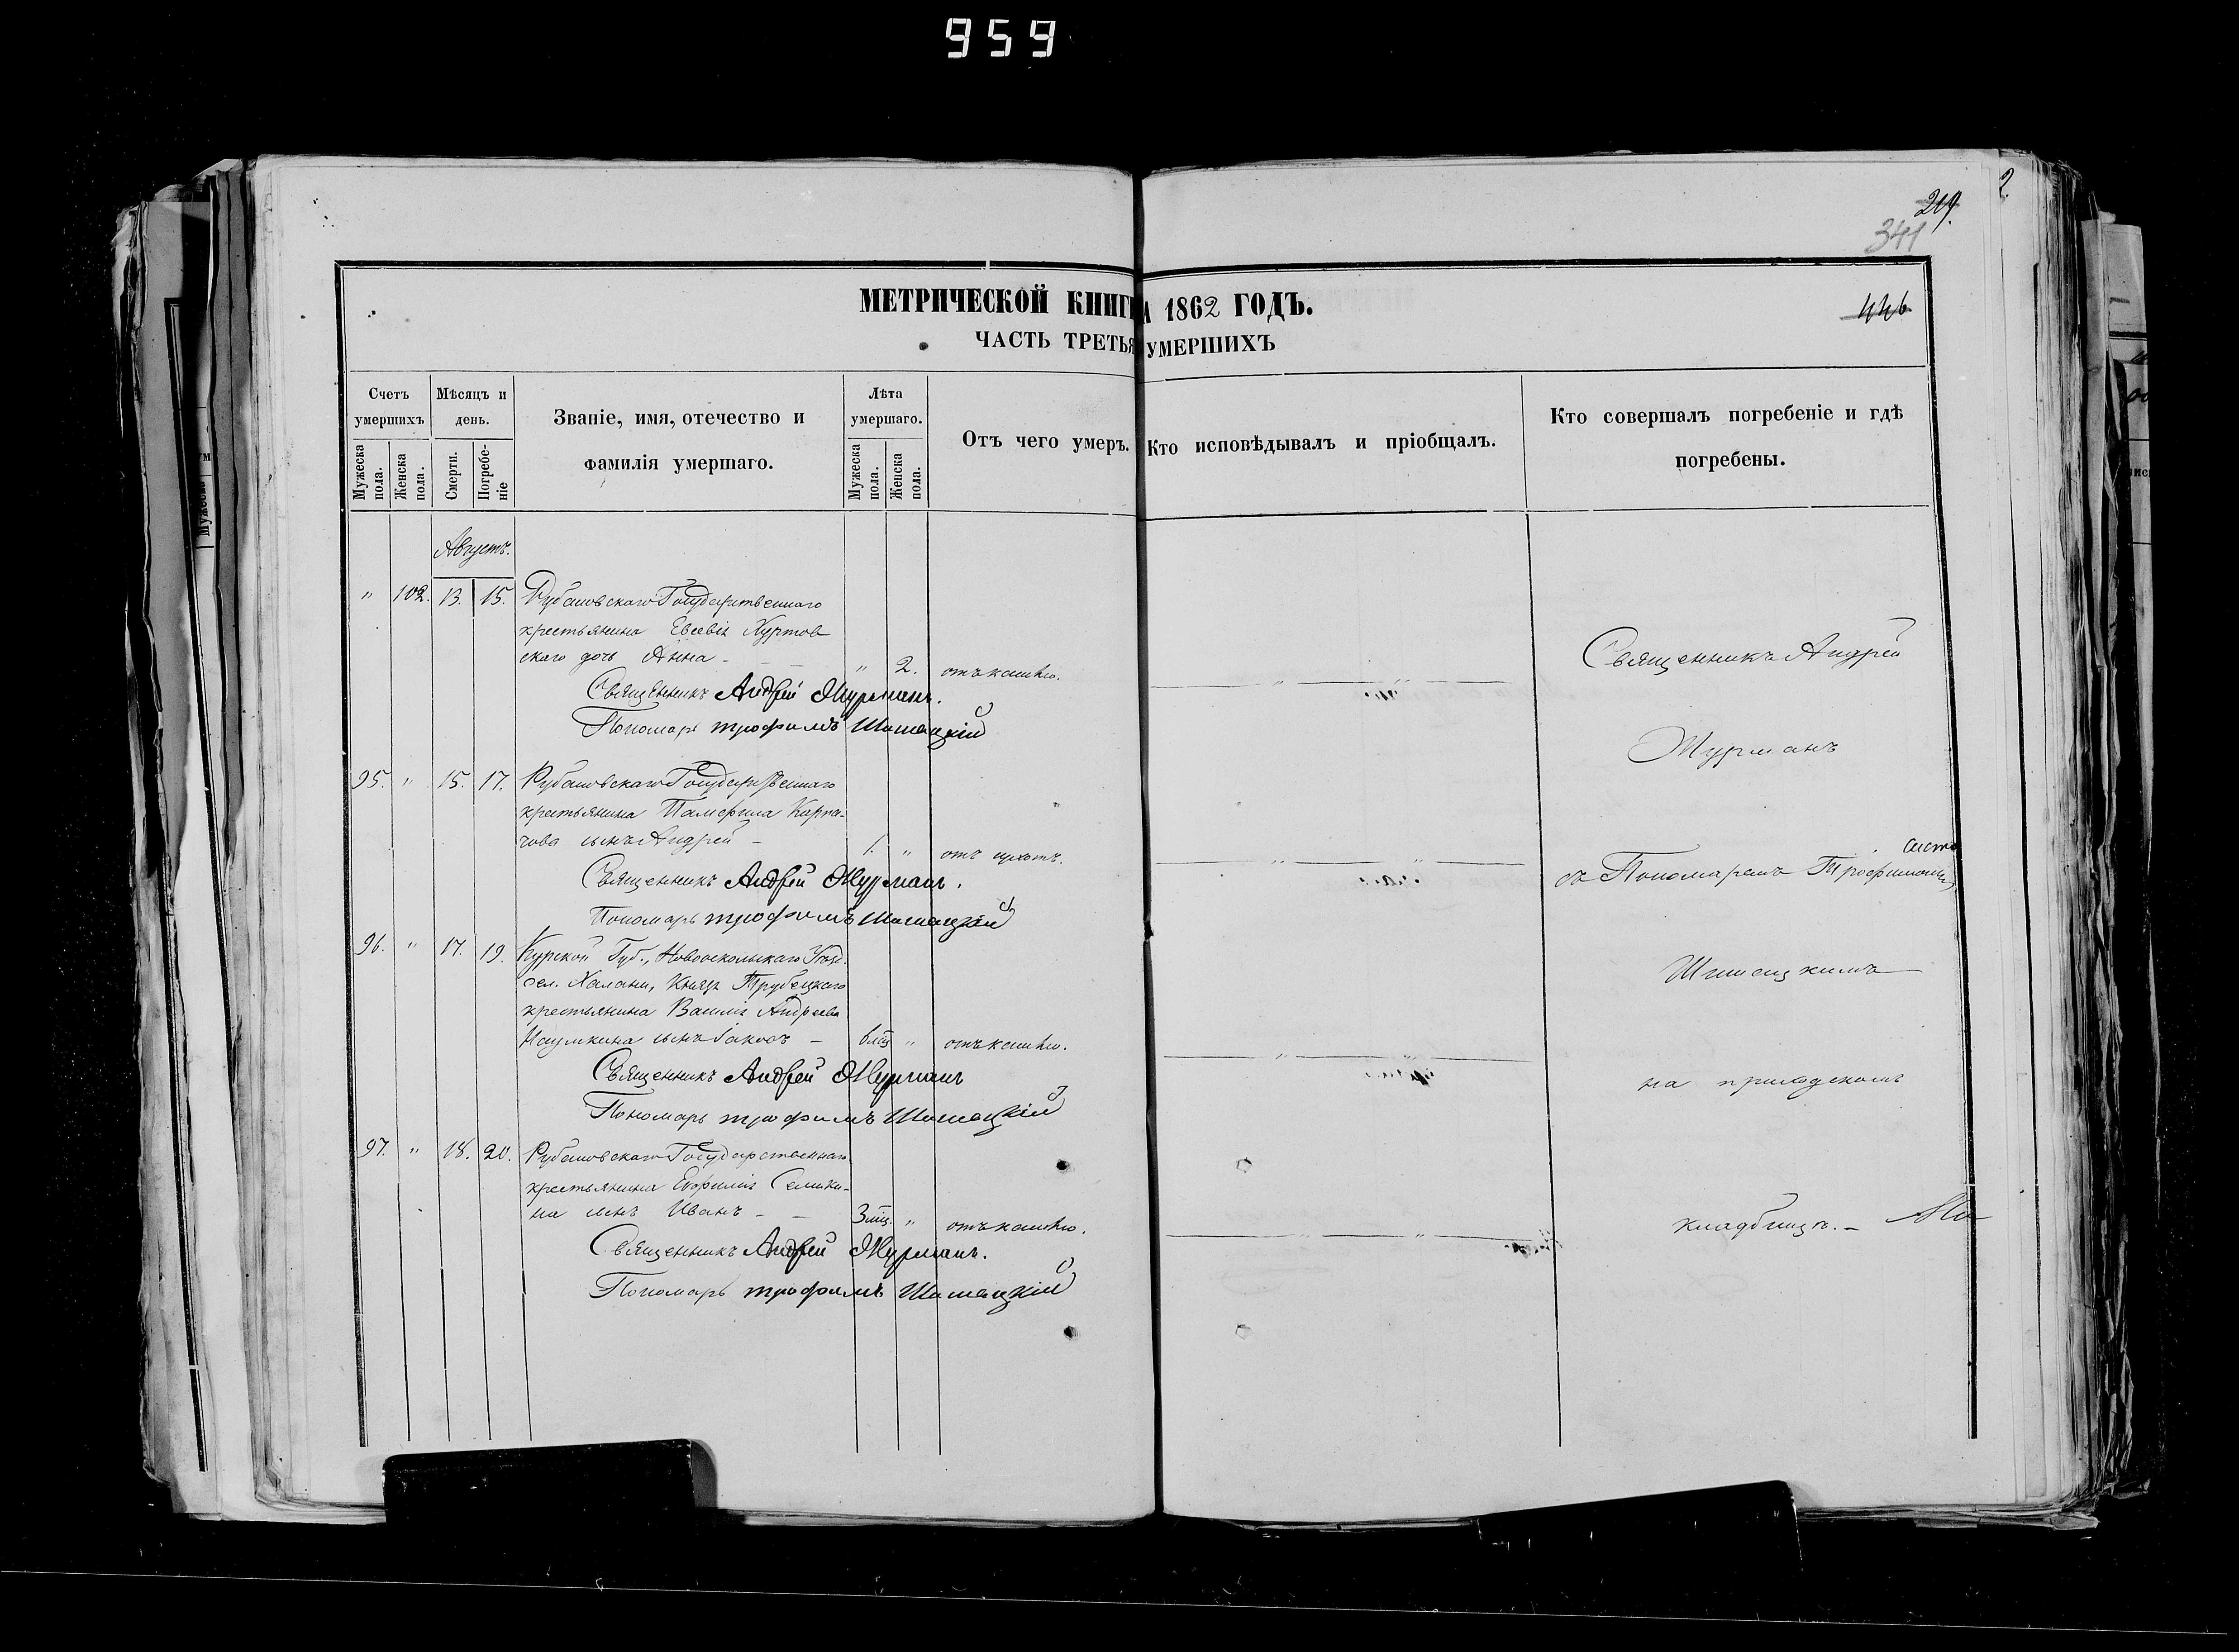 959
219.
2.
341
МЕТРИЧЕСКОЙ КНИГИ 1862 ГОДЪ.
446
ЧАСТЬ ТРЕТЬЯ УМЕРШИХЪ
Счетъ умершихъ
Мѣсяцъ и день.
Званіе, имя, отечество и фамилія умершаго.
Лѣта умершаго.
Отъ чего умеръ.
Кто исповѣдывалъ и пріобщалъ.
Кто совершалъ погребеніе и гдѣ погребены.
Мужеска пола.
Женска пола.
Смерти.
Погребеніе
Мужеска пола.
Женска пола.
Августъ.
" 102. 13. 15. Рубановскаго Государственнаго
крестьянина Евсевія Хуртов
скаго дочь Анна - " 2. отъ кашлю.
Священникъ Андрей Журманъ.
Пономарь Трофимъ Шишацкій
95. " 15. 17. Рубановскаго Государственнаго
крестьянина Памфила Карпа-
чова сынъ Андрей - 1. " отъ
Священникъ Андрей Журманъ.
Пономарь Трофимъ Шишацкій
96. " 17. 19. Курской Губ., Новооскольскаго Уѣзд.
сел. Халани, Князя Трубецкаго
крестьянина Василія Андреева
Наумкина сынъ Іаковъ - 6 мѣц " отъ кашлю.
Священникъ Андрей Журманъ
Пономарь Трофимъ Шишацкій
97. " 18. 20. Рубановскаго Государственнаго
крестьянина Евфимія Семики-
на сынъ Иванъ - 3 мц. " отъ кашлю.
Священникъ Андрей Журманъ.
Пономарь Трофимъ Шишацкій
Священникъ Андрей
Журманъ
съ Пономаремъ Трофимомъ
Шишацкимъ
на приходскомъ
кладбищѣ. -